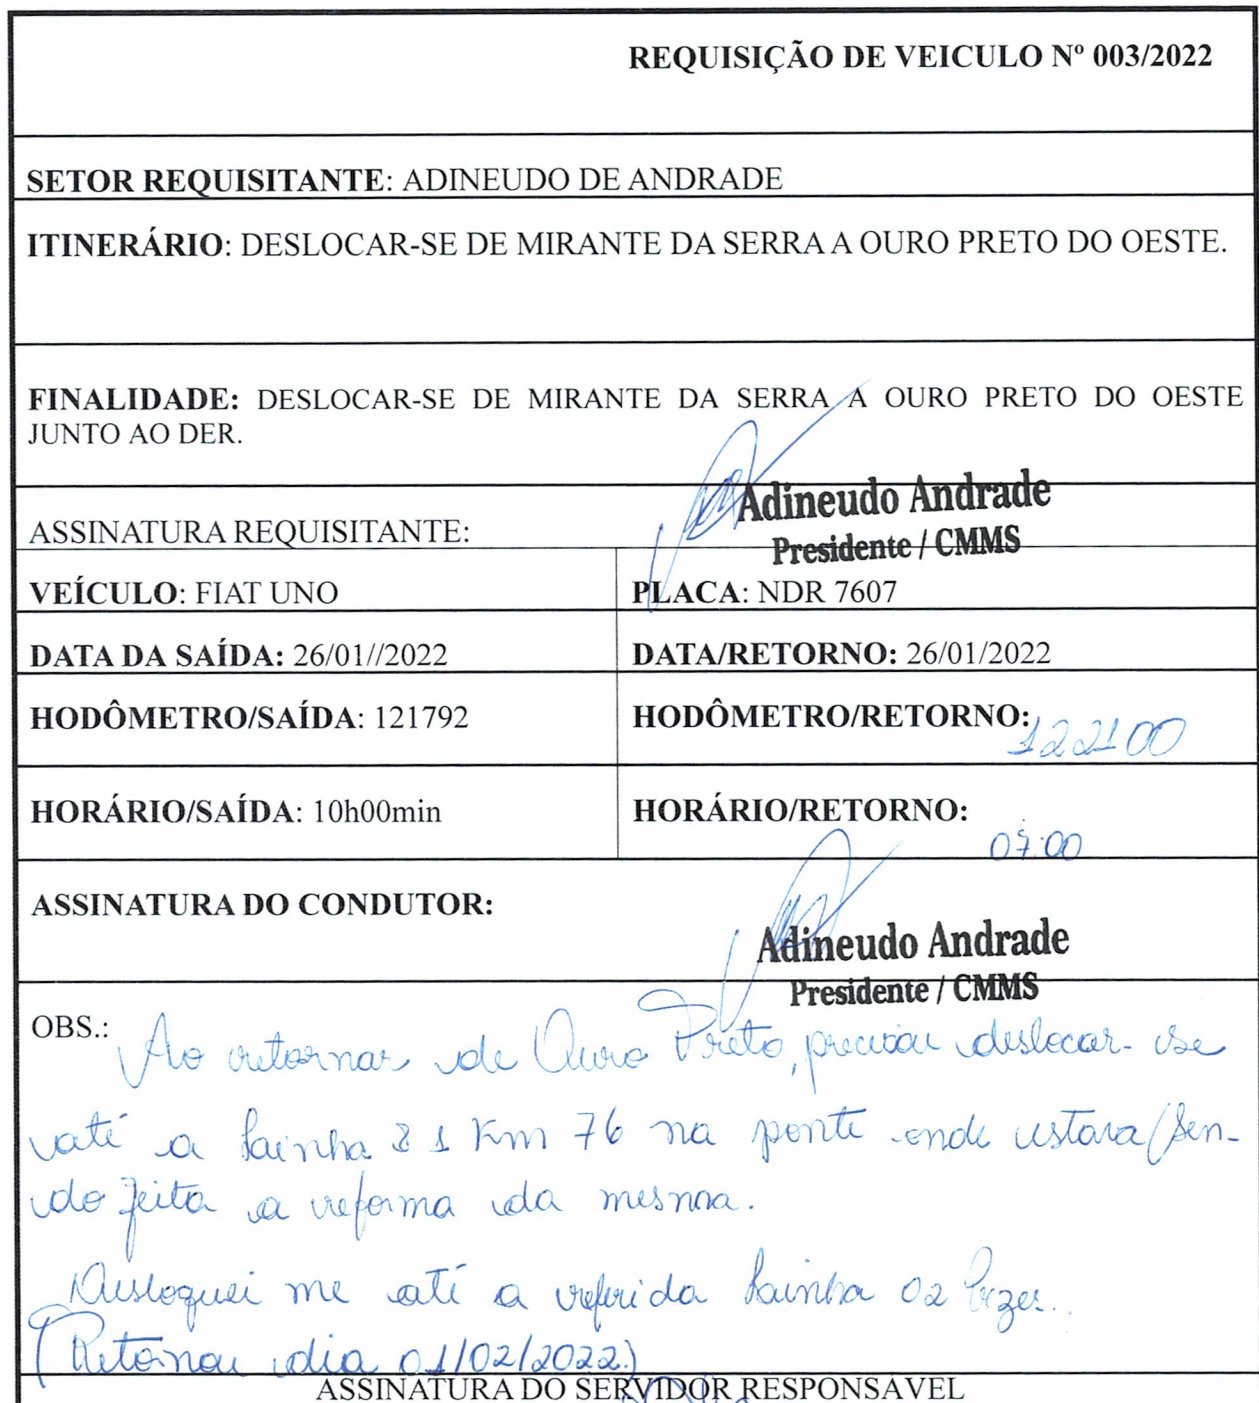 REQUISIÇÃO DE VEICULO Nº 003/2022
SETOR REQUISITANTE: ADINEUDO DE ANDRADE
ITINERÁRIO: DESLOCAR-SE DE MIRANTE DA SERRA A OURO PRETO DO OESTE.
FINALIDADE: DESLOCAR-SE DE MIRANTE DA SERRA A OURO PRETO DO OESTE
JUNTO AO DER.
Adineudo Andrade
Presidente / CMMS
ASSINATURA REQUISITANTE:
VEÍCULO: FIAT UNO PLACA: NDR 7607
DATA DA SAÍDA: 26/01//2022 DATA/RETORNO: 26/01/2022
HODÔMETRO/SAÍDA: 121792 HODÔMETRO/RETORNO: 122100
HORÁRIO/SAÍDA: 10h00min HORÁRIO/RETORNO: 07:00
ASSINATURA DO CONDUTOR:
Adineudo Andrade
Presidente / CMMS
OBS.: Ao retornar de Ouro Preto, precisou deslocar-se
até a lainha 81 Km 76 na ponte onde estava sen-
do feita a reforma da mesma.
Desloquei me até a referida lainha 02 vezes..
(Retornou dia 01/02/2022)
ASSINATURA DO SERVIDOR RESPONSÁVEL